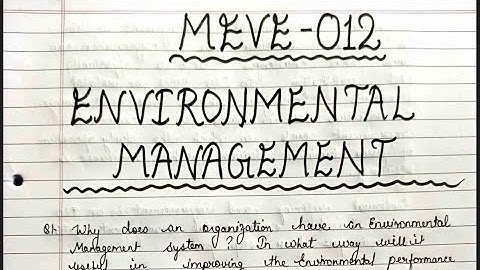 MEVE-012
ENVIRONMENTAL
MANAGEMENT
Q1. Why does an organization have an Environmental
Management system? In what way will it
useful in improving the Environmental performance